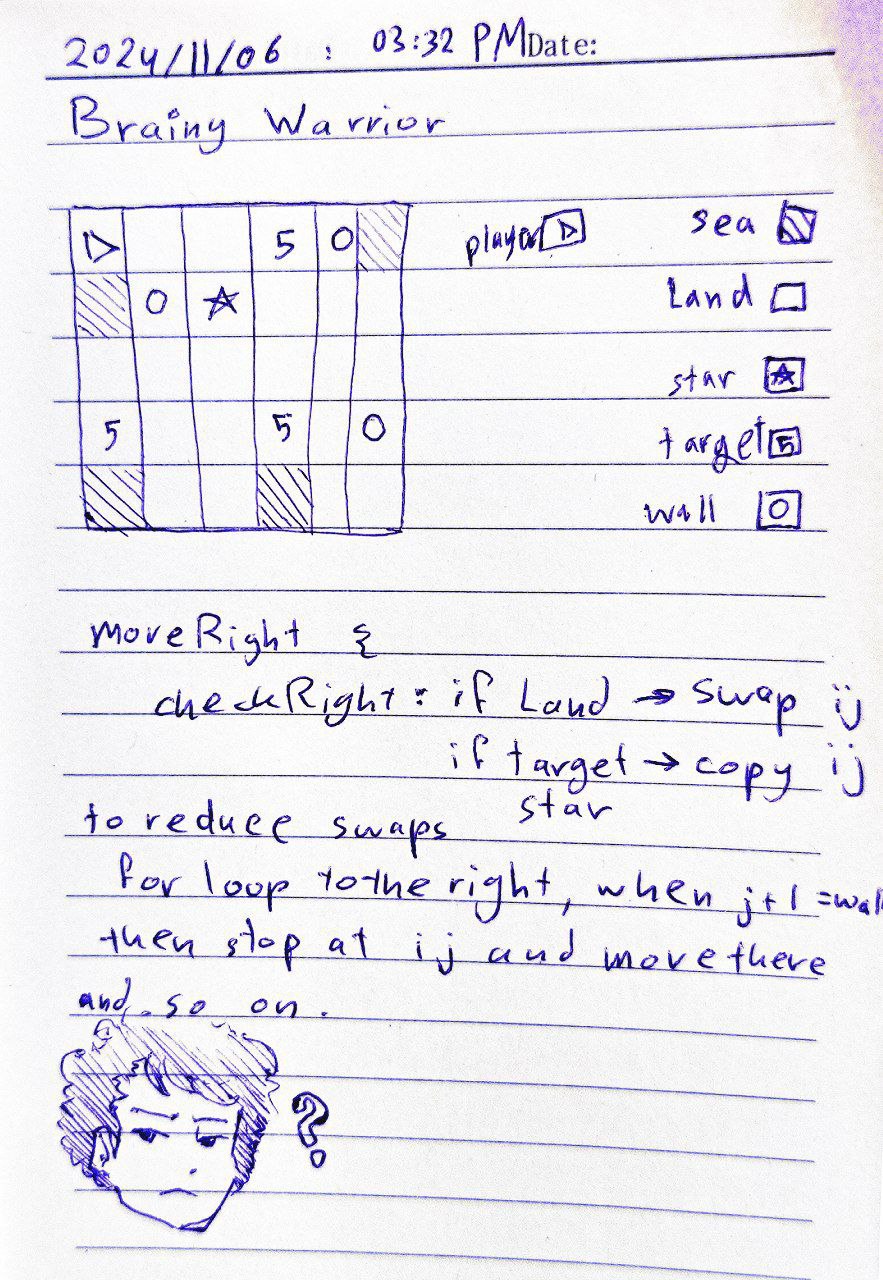 2024/11/06 : 03:32 PM Date:
Brainy Warrior
5 0
player
sea
0
Land
star
5 5 0
target 5
wall 0
moveRight {
checkRight: if Land → swap ij
if target → copy ij
star
to reduce swaps
for loop to the right, when j+1 = wall
then stop at ij and move there
and so on.
?